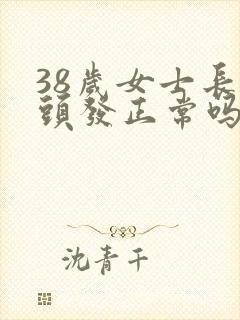 38歲女士長
頭發正常嗎
沈青千